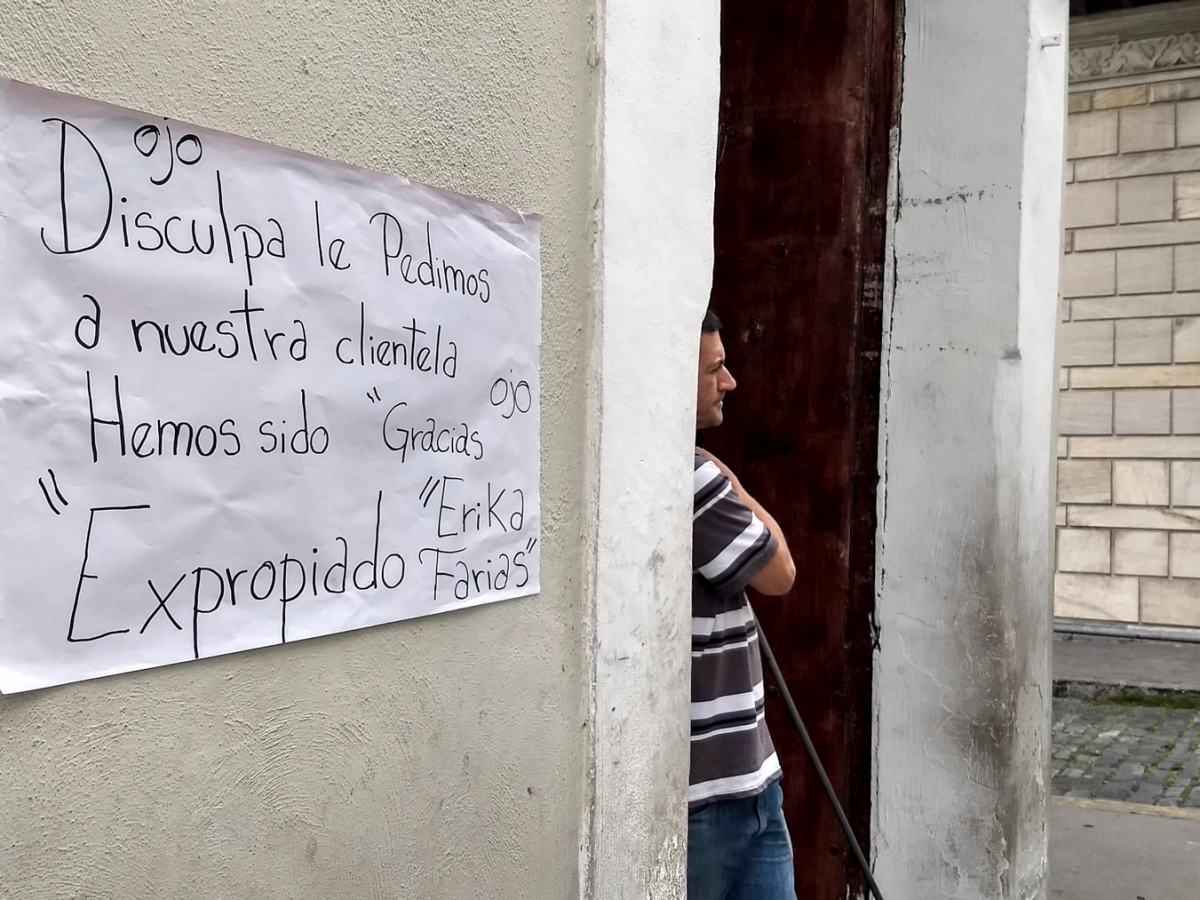 ojo
Disculpa le Pedimos
a nuestra clientela
Hemos sido "Gracias ojo
"Expropiado "Erika
Farias"